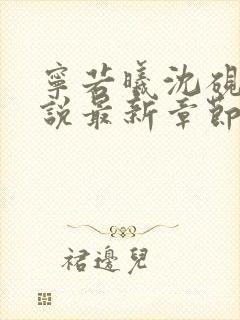 寧若曦沈硯
說最新章節
裙邊兒